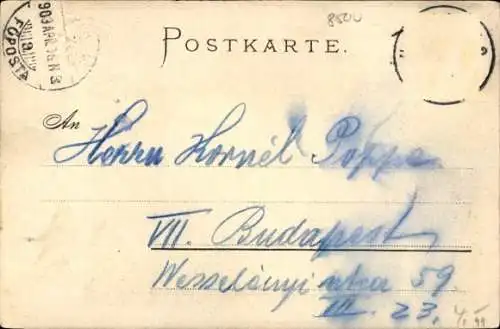 8500
POSTKARTE.
903 APR. 26 N 3
FŐPOSTA
An
Herrn Kornél Poppe
VII. Budapest
Wesselényi utca 59
III. 23.